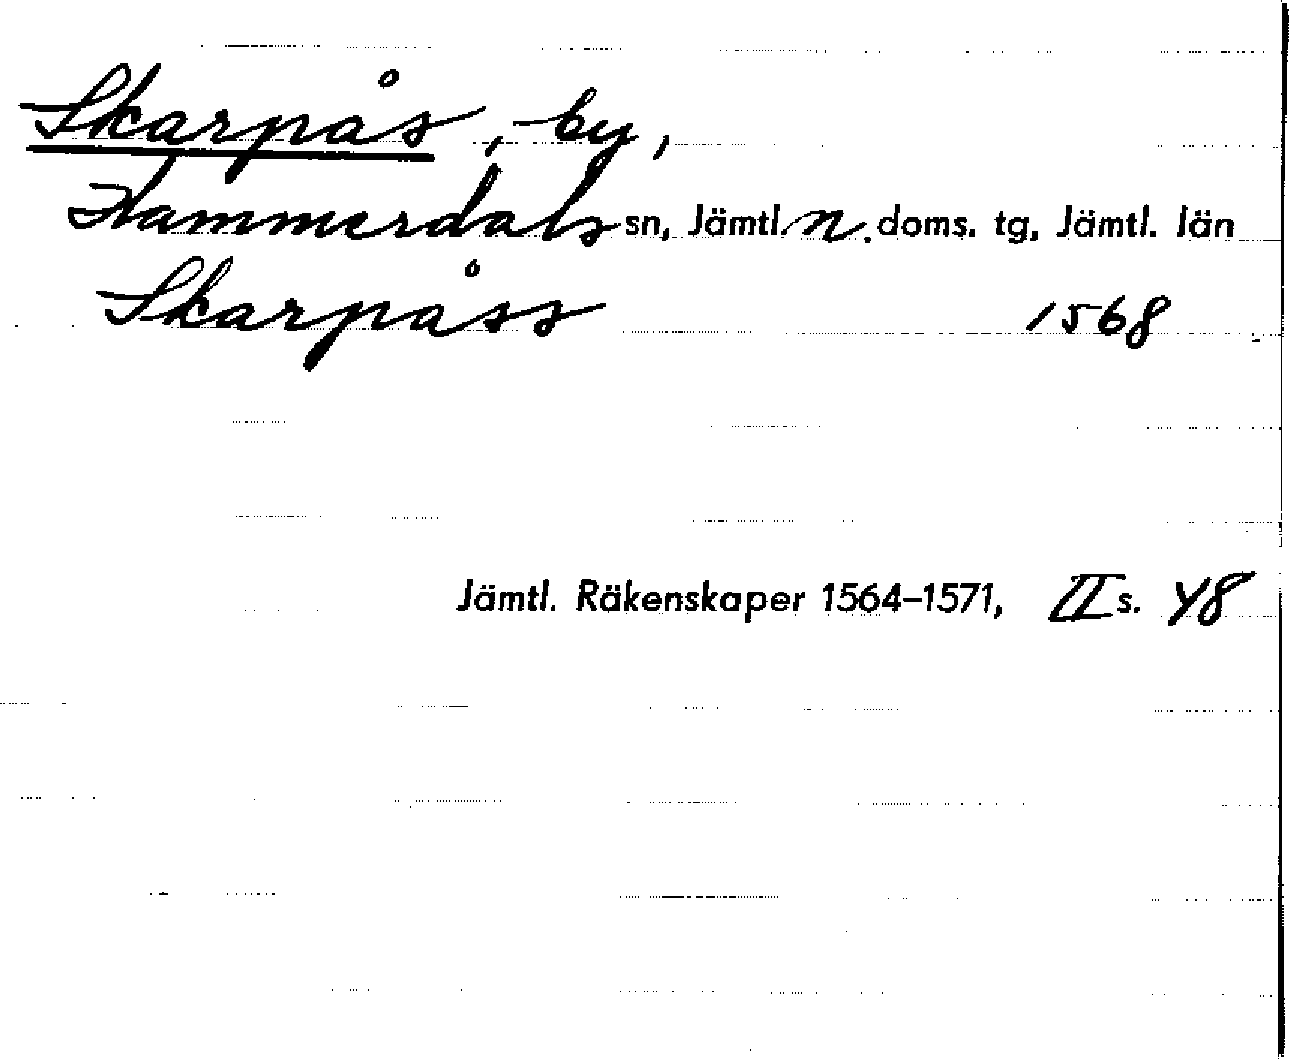 Skarpås, by,
Hammerdals sn, Jämtl. n. doms. tg, Jämtl. län
Skarpåss 1568
Jämtl. Räkenskaper 1564–1571, II s. 48